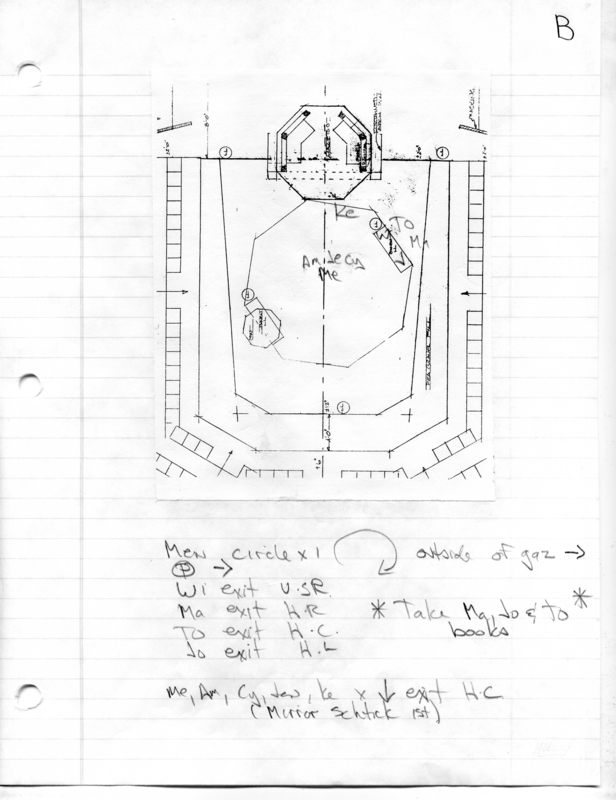 B
Ke
To
Ma
Am Je Cy
Me
Men circle x 1 outside of gaz →
Ⓟ →
Wi exit U.SR.
Ma exit H.R * Take Ma, Jo & To *
To exit H.C. books
Jo exit H.L
Me, Am, Cy, Jen, Ke x ↓ exit H.C
(Mirror Schtick 1st)